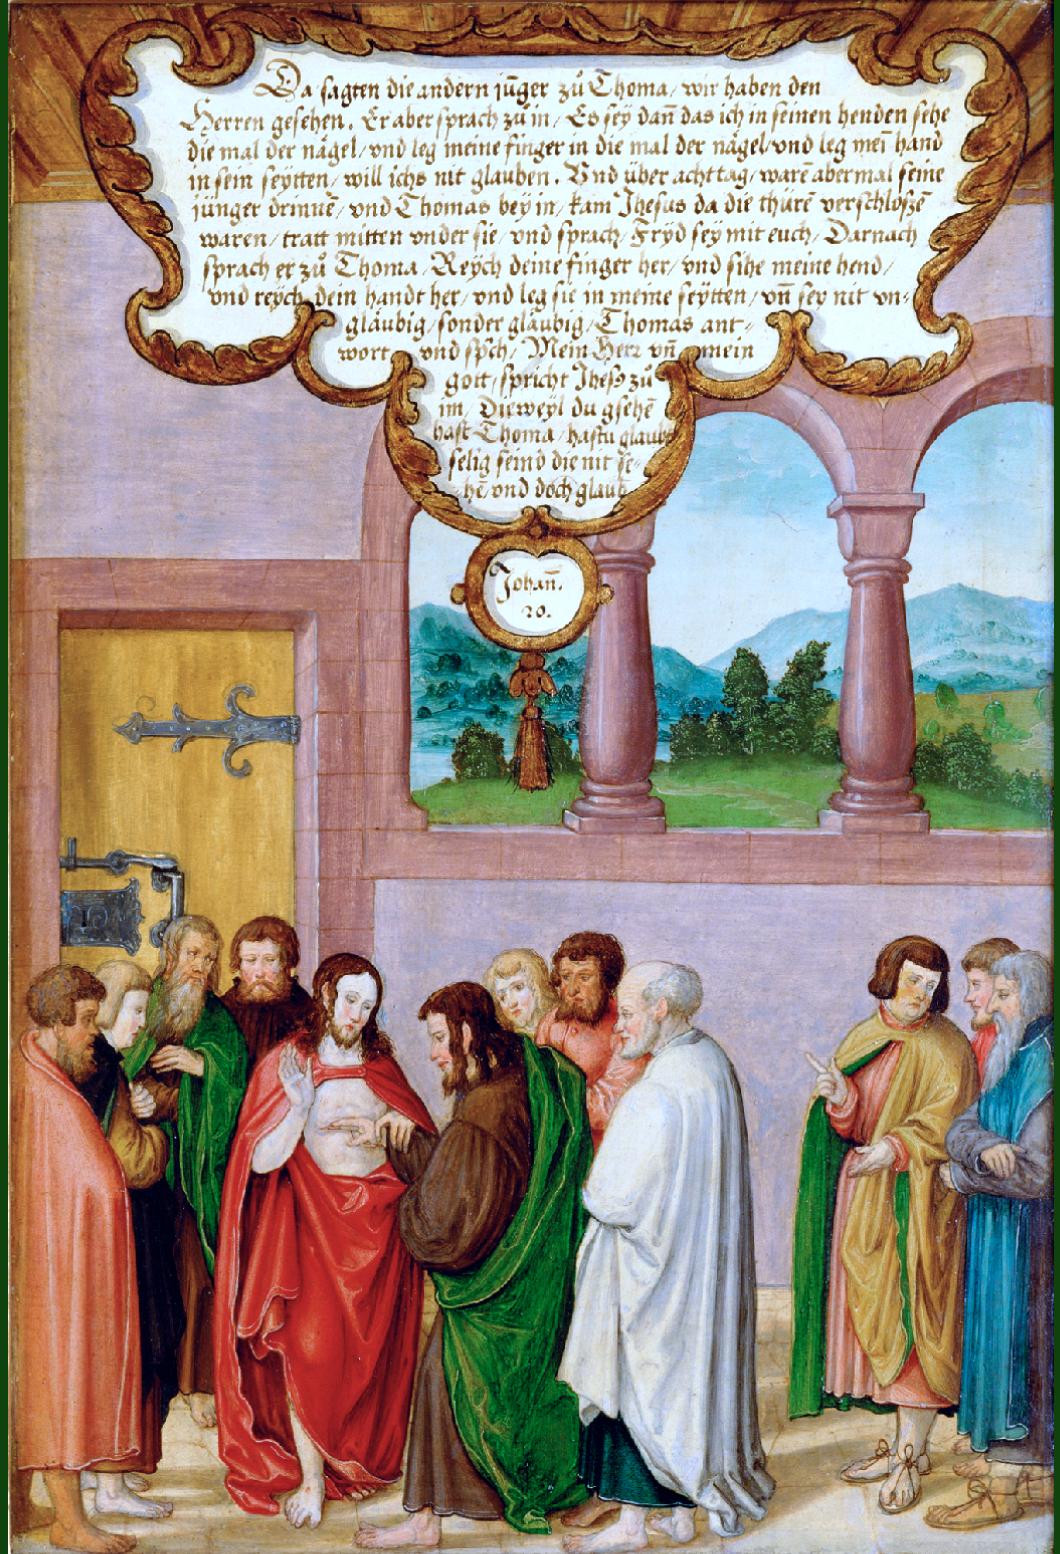 Da sagten die andern jūger zů Thoma / wir haben den
Herren gesehen. Er aber sprach zu in / Es sey dañ das ich in seinen henden sehe
die mal der någel / vnd leg meine finger in die mal der någel / vnd leg meī hand
in sein seytten / will ichs nit glauben. Vnd über acht tag / warē abermal seine
jünger drinnē / vnd Thomas bey in / kam Jhesus da die thürē verschloßē
waren / tratt mitten vnder sie / vnd sprach / Fryd sey mit euch / Darnach
sprach er zů Thoma / Reych deine finger her / vnd sihe meine hend /
vnd reych dein handt her / vnd leg sie in meine seytten / vñ sey nit vn-
gläubig / sonder gläubig / Thomas ant-
wort vnd spch / Mein Herr vñ mein
gott / spricht Jhesꝰ zů
im / Dieweyl du gsehē
hast Thoma / hastu glaubt
selig seind die nit se-
hē vnd doch glaub
Johañ.
20.